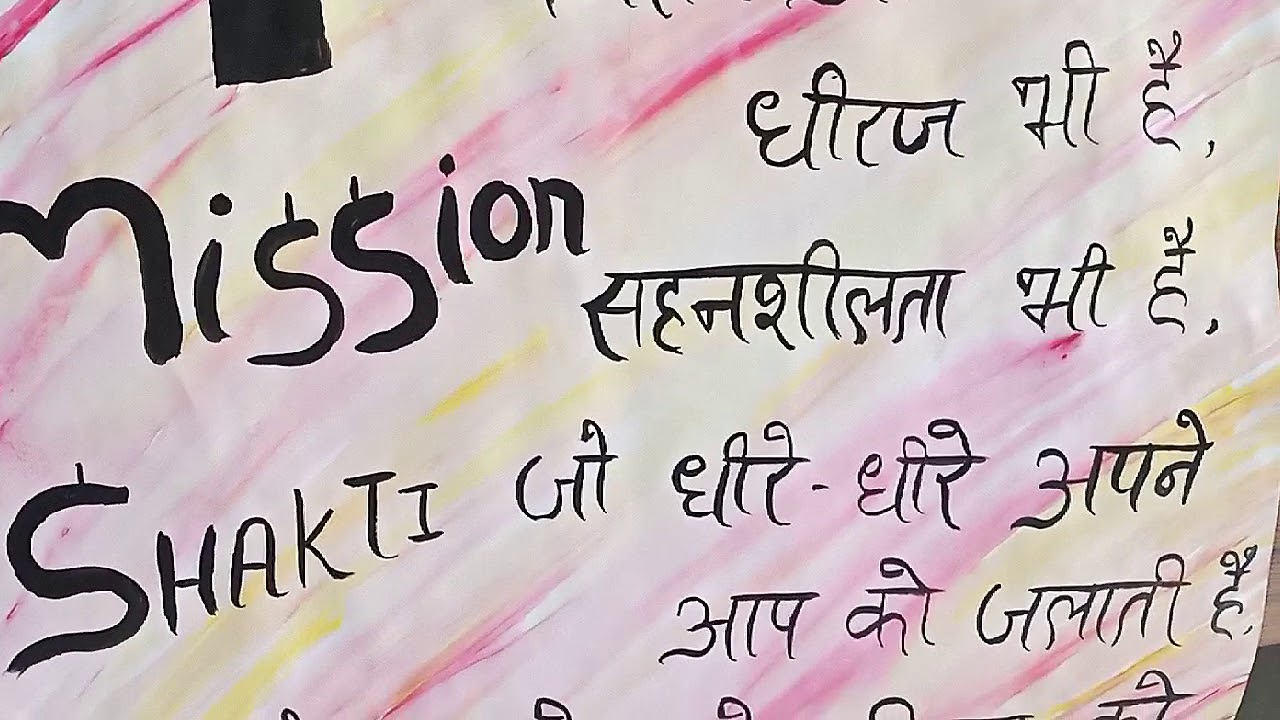 धीरज भी है,
Mission
सहनशीलता भी है,
SHAKTI
जो धीरे-धीरे अपने
आप को जलाती है,